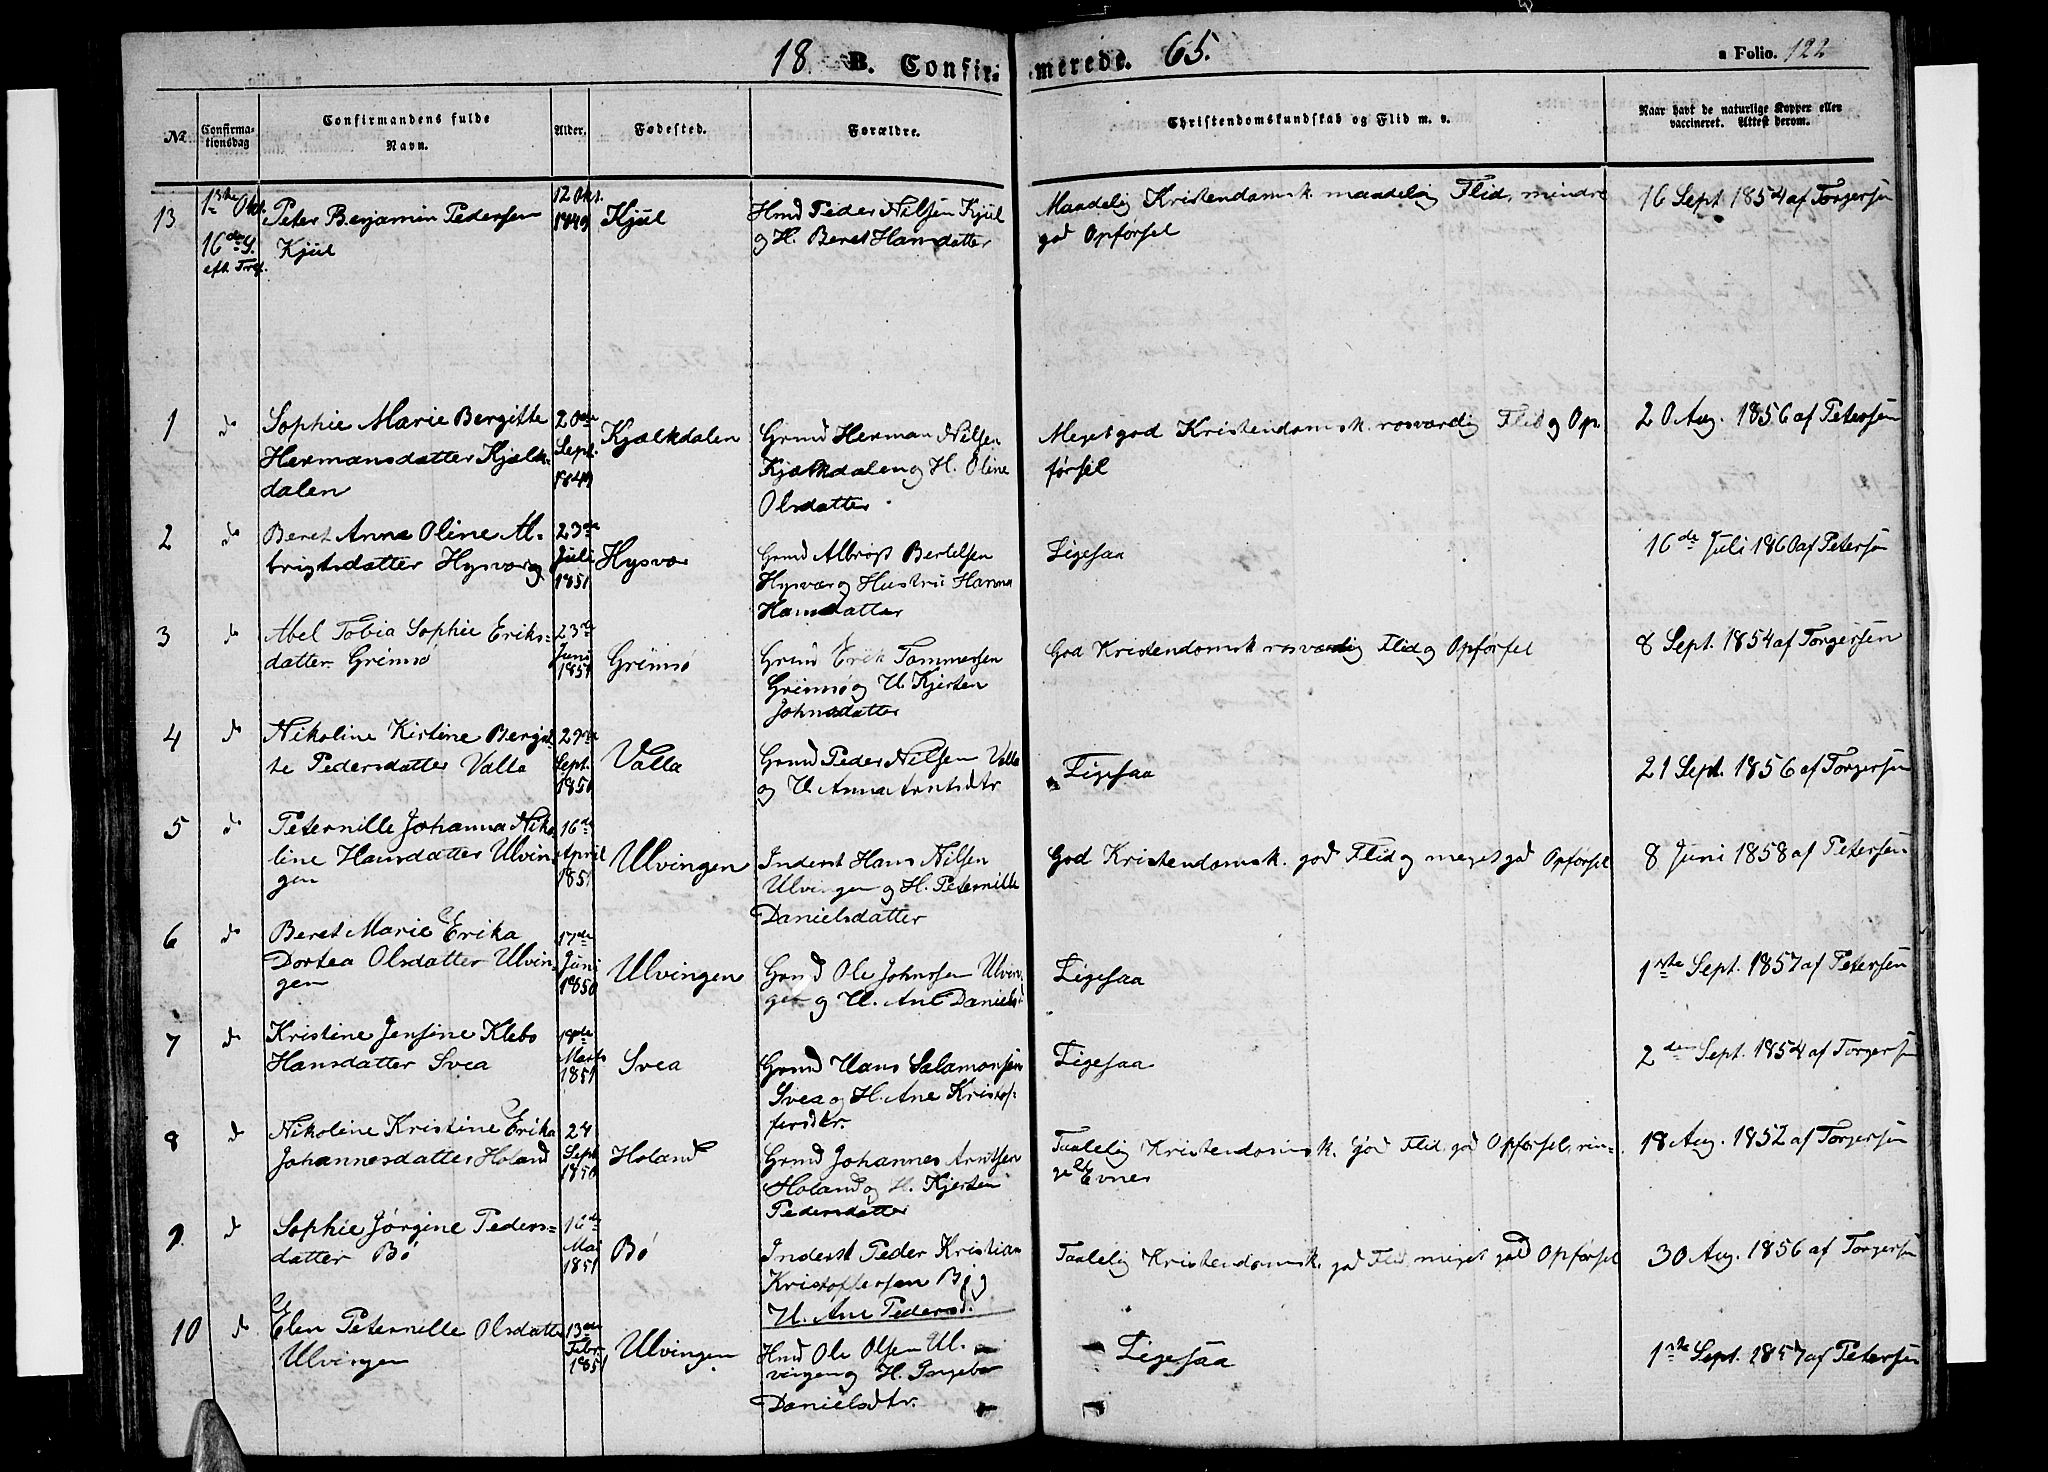 18 B. Confirmerede. 65.
a Folio. 122
No. Confirmationsdag Confirmandens fulde Navn. Alder. Fødested. Forældre. Christendomskundskab og Flid m. v. Naar havt de naturlige Kopper eller vaccineret. Attest derom.
13 1ste Okt. 16de S. eft. Tref.
Peter Benjamin Pedersen
Kjül
12 Okt.
1849
Kjül
Hmd Peder Nilsen Kjül
og H. Beret Hansdatter
Maadelig Kristendomsk. maadelig Flid, mindre
god Opførsel
16 Sept 1854 af Torgersen
1 do
Sophie Marie Bergitte
Hermansdatter Kjælk-
dalen
20de
Sept.
1849
Kjælkdalen
Grmd Herman Nilsen
Kjælkdalen og H. Oline
Olsdatter
Meget god Kristendomsk. rosværdig Flid og Op-
førsel
20 Aug. 1856 af Petersen
2 do
Beret Anna Oline Al-
brigtsdatter Hysvær
23de
Juli
1851
Hysvær
Grmd Albrigt Bertelsen
Hysvær og Hustru Hanna
Hansdatter
Ligesaa
16de Juli 1860 af Petersen
3 do
Abel Tobia Sophie Eriks-
datter Grimsø
23de
Juni
1851
Grimsø
Grmd Erik Tommesen
Grimsø og H. Kjersten
Johnsdatter
God Kristendomsk rosværdig Flid og Opførsel
8 Sept. 1854 af Torgersen
4 do
Nikoline Kistine Bergit-
te Pedersdatter Valla
29de
Sept.
1850
Valla
Grmd Peder Nilsen Valla
og H. Anna Arntsdtr
Ligesaa
21 Sept. 1856 af Torgersen
5 do
Peternille Johanna Niko-
line Hansdatter Ulvin-
gen
16de
April
1851
Ulvingen
Inderst Hans Nilsen
Ulvingen og H. Peternille
Danielsdatter
God Kristendomsk. god Flid og meget god Opførsel
8 Juni 1858 af Petersen
6 do
Beret Marie Erika
Dortea Olsdatter Ulvin-
gen
17de
Juni
1850
Ulvingen
Grmd Ole Johnsen Ulvin-
gen og H. Ane Danielsd.
Ligesaa
1ste Sept. 1857 af Petersen
7 do
Kristine Jensine Klebo
Hansdatter Svea
18de
Marts
1851
Svea
Grmd Hans Salamonsen
Svea og H. Ane Kristof-
fersdtr.
Ligesaa
2den Sept. 1854 af Torgersen
8 do
Nikoline Kristine Erika
Johannesdatter Holand
24
Sept
1850
Holand
Grmd Johannes Arntsen
Holand og H. Kjersten
Pedersdatter
Taalelig Kristendomsk. god Flid, god Opførsel, rin-
ge Evner
18 Aug. 1852 af Torgersen
9 do
Sophie Jørgine Peders-
datter Bø
16de
Mai
1851
Bø
Inderst Peder Kristian
Kristoffersen Bø og
H. Ane Pedersd.
Taalelig Kristendomsk. god Flid meget god Opførsel
30 Aug. 1856 af Torgersen
10 do
Elen Peternille Olsdatter
Ulvingen
13de
Febr.
1851
Ulvingen
Hmd Ole Olsen Ul-
vingen og H. Ingebor
Danielsdtr.
Ligesaa
1ste Sept. 1857 af Petersen